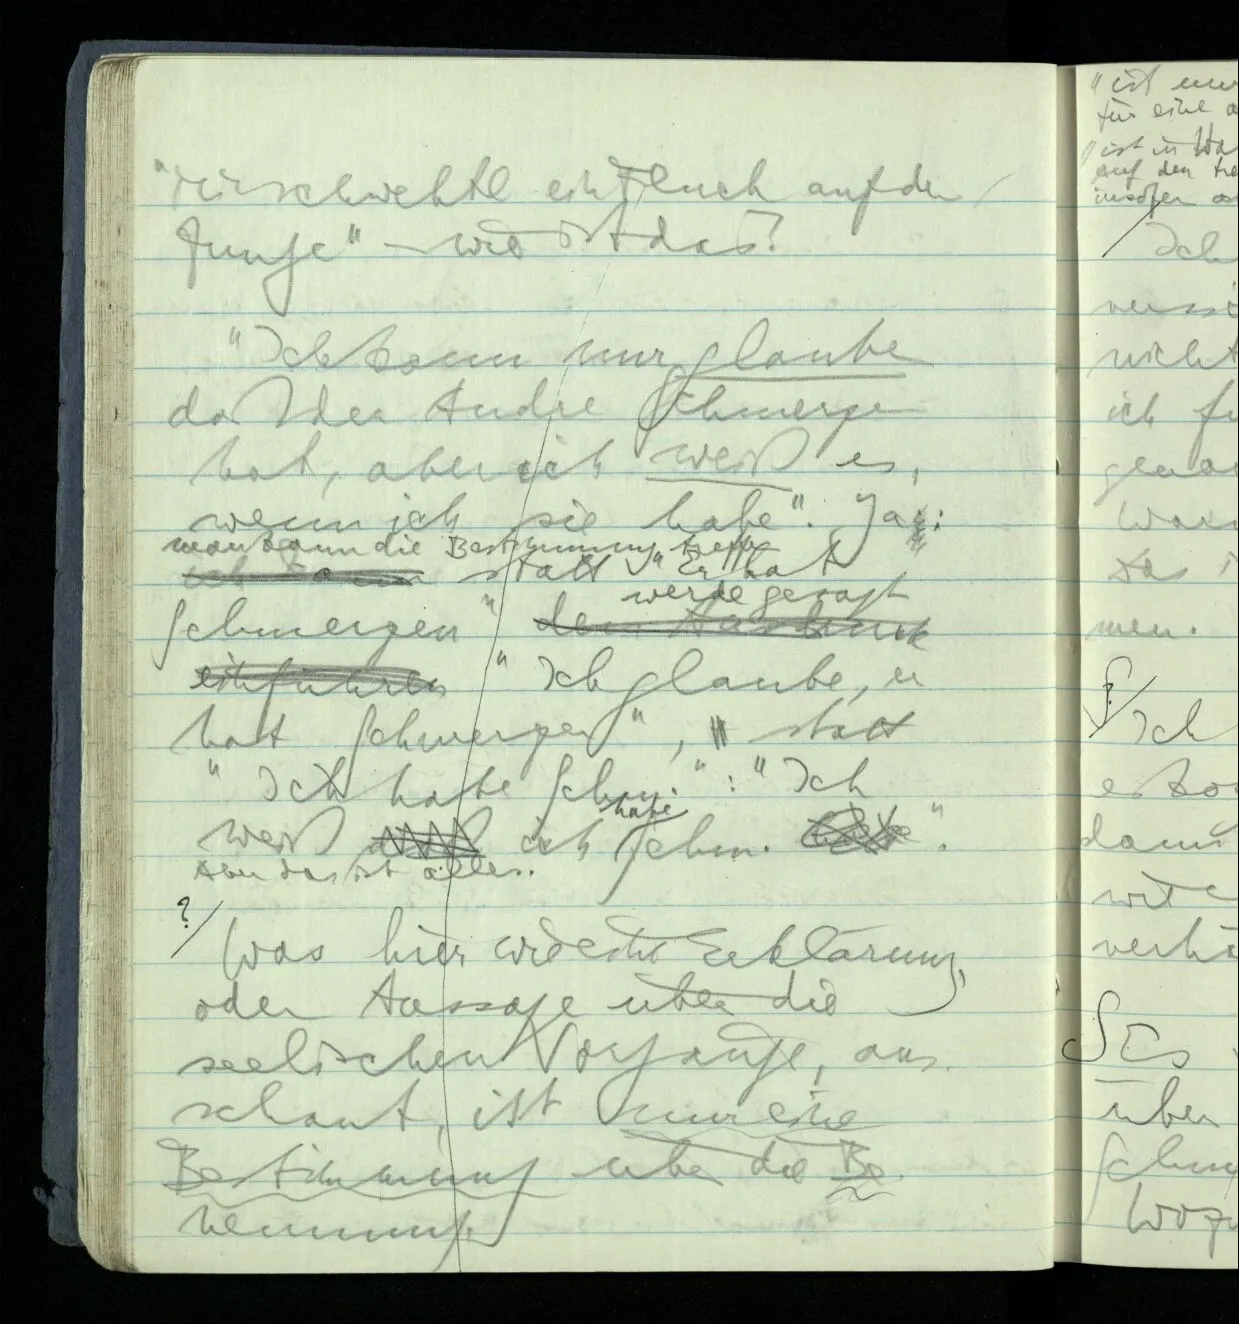 "mir schwebte ein Fluch auf der
Zunge" – wie ist das?
"Ich kann nur glaube
daß der Andre Schmerzen
hat, aber ich weiß es,
wenn ich sie habe". Ja:
man kann die Bestimmung treffen
ich kann statt "Er hat
werde gesagt
Schmerzen" den Ausdruck
einführen "Ich glaube, er
hat Schmerzen", statt
"Ich habe Schm." : "Ich
habe
weiß ich Schm. habe".
Aber das ist alles.
?/
Was hier wie eine Erklärung,
oder Aussage über die
seelischen Vorgänge, aus
schaut, ist nur eine
Bestimmung über die Be
nennung.
"ist
für eine
"ist in
auf den
insofern
Ich
nicht
ich
Das
men.
?/
Ich
damit
wie
Es
über